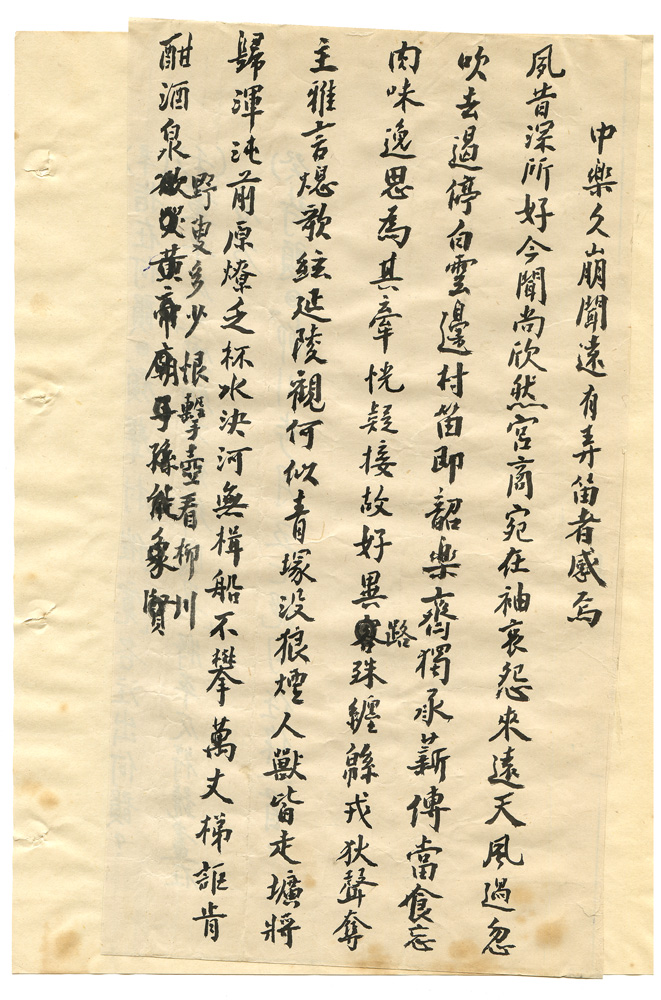 中樂久崩聞遠有弄笛者感焉
夙昔深所好今聞尚欣然宮商宛在袖哀怨來遠天風過忽
吹去遏停白雲邊村笛即韶樂齋獨承薪傳當食忘
肉味逸思為其牽恍疑接故好異路殊纏綿戎狄聲奪
主雅言熄歌絃延陵觀何似青塚沒狼煙人獸皆走壙將
歸渾沌前原燎乏杯水決河無楫船不攀萬丈梯詎肯
酣酒泉
野叟多少恨擊壺看柳川